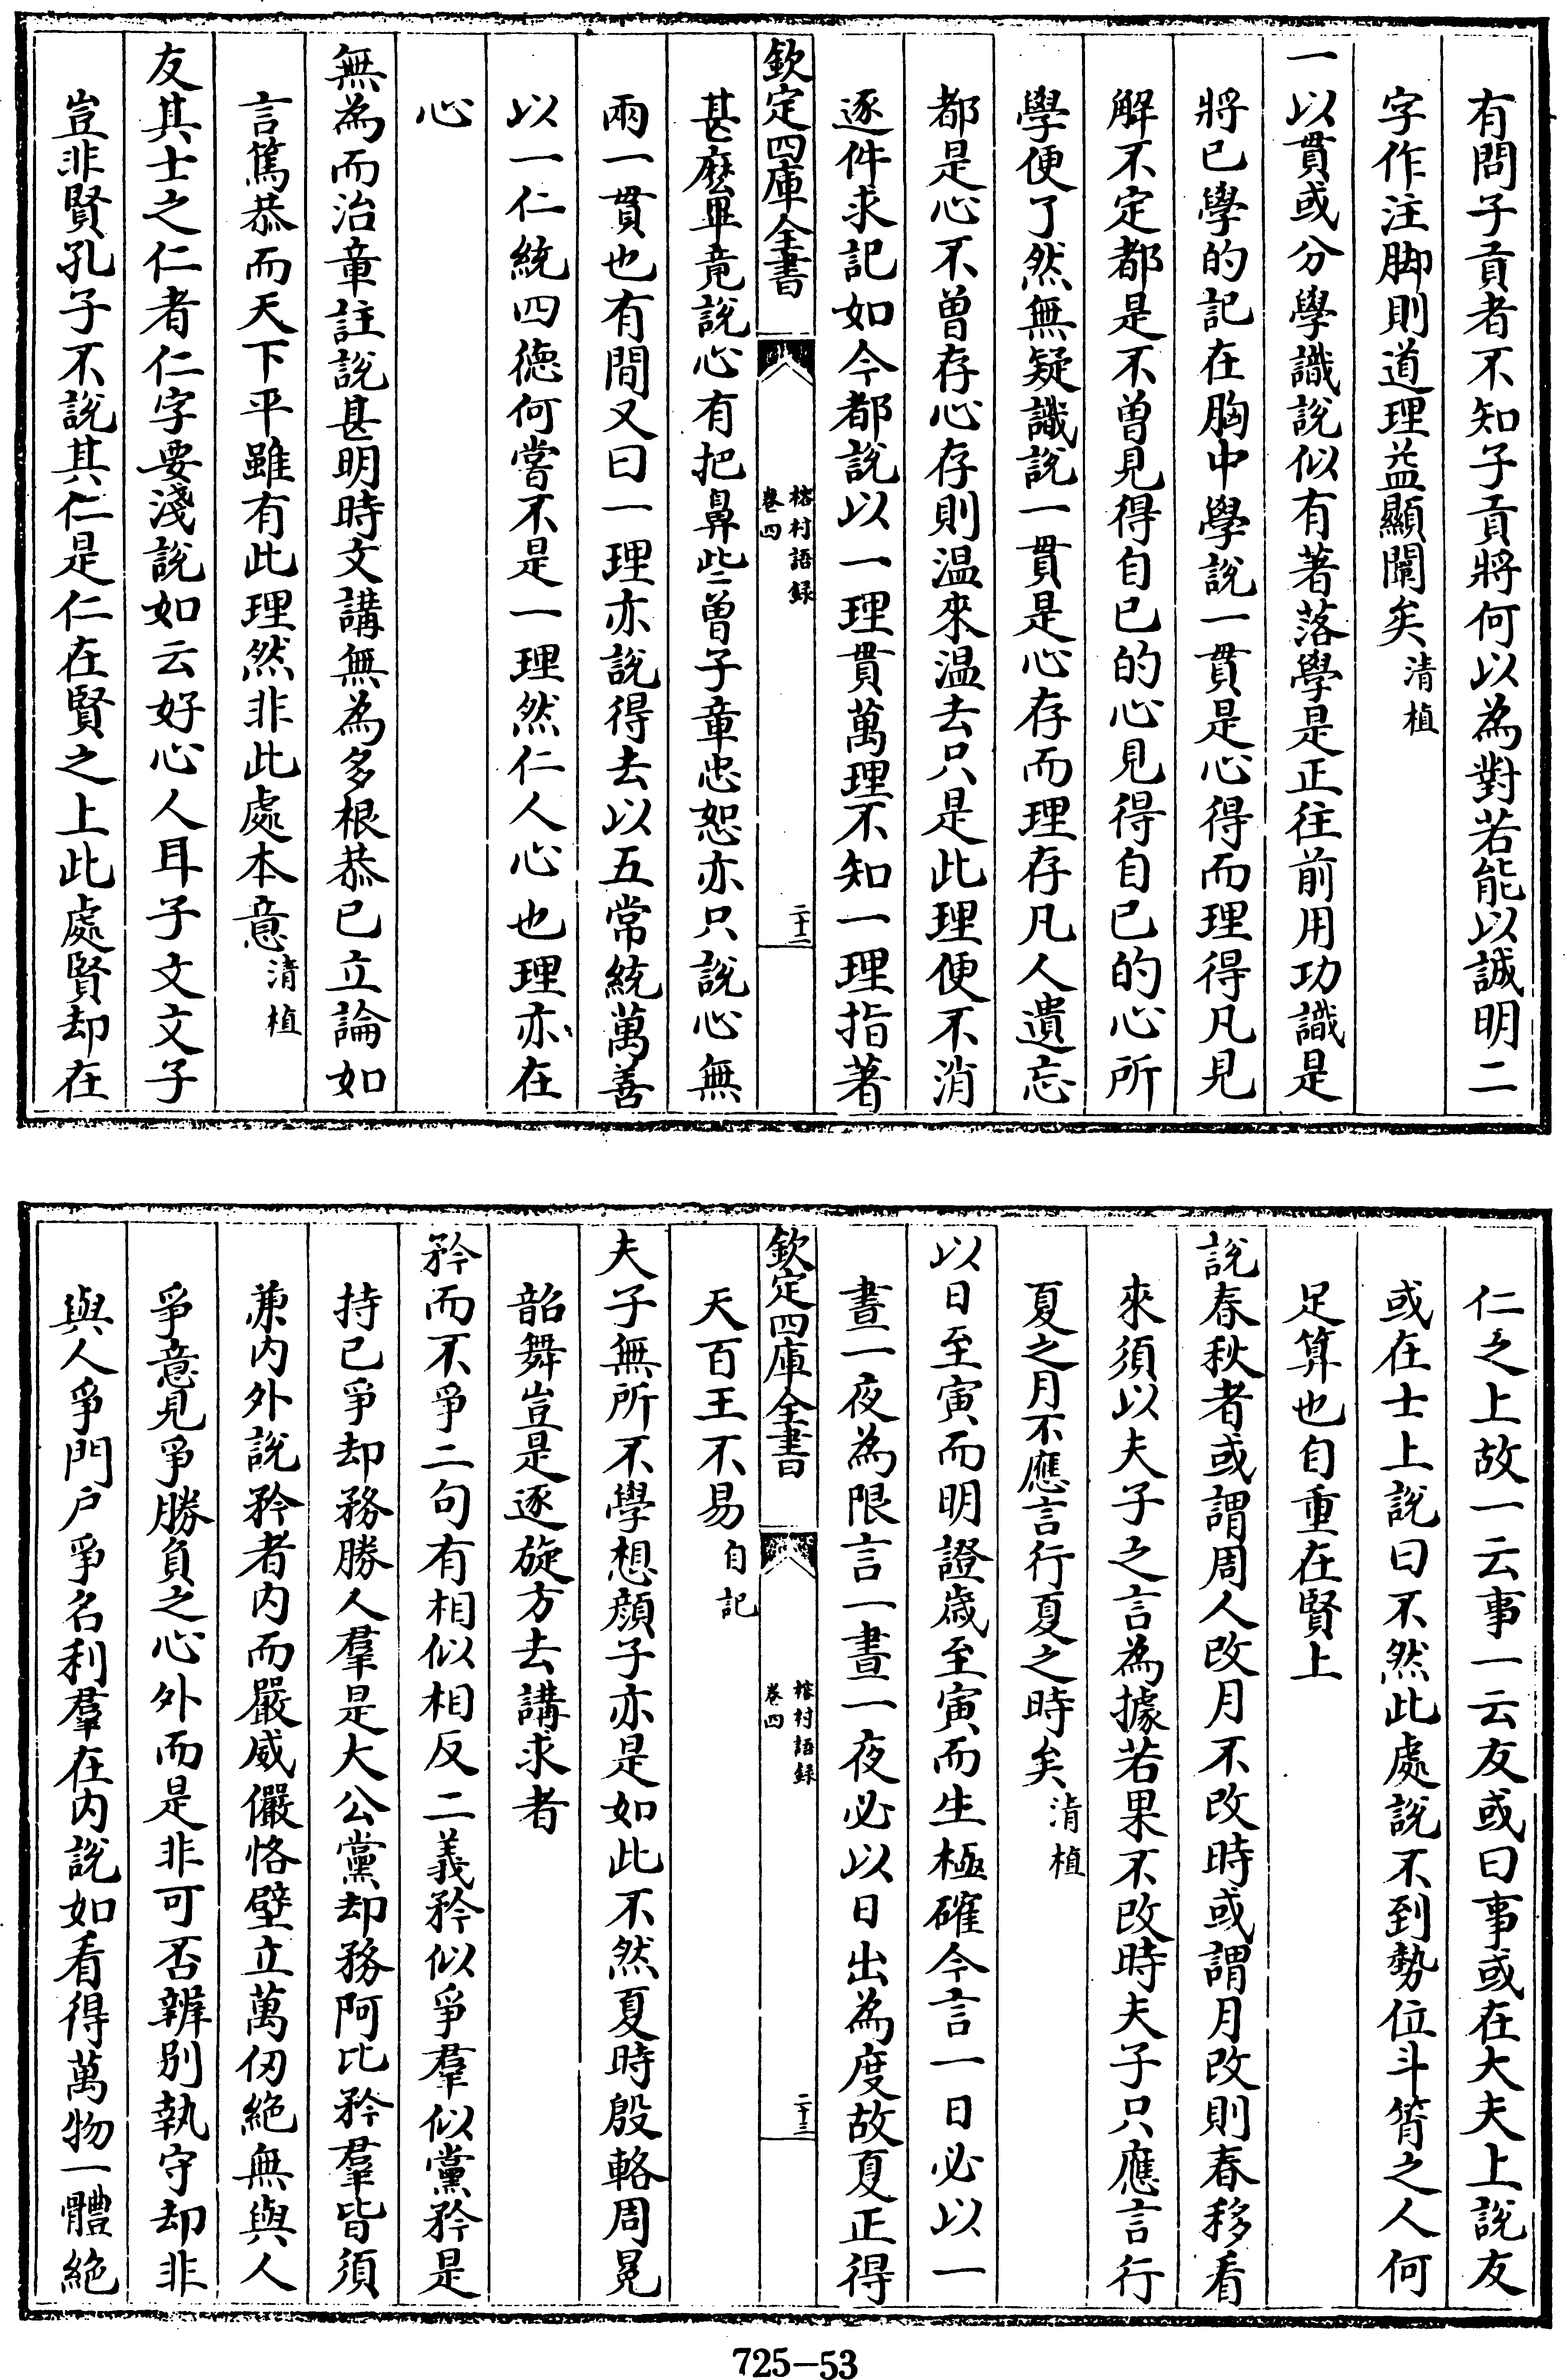 有問子貢者不知子貢將何以為對若能以誠明二
字作注脚則道理益顯闡矣清植
一以貫或分學識說似有著落學是正往前用功識是
將已學的記在胸中學說一貫是心得而理得凡見
解不定都是不曾見得自已的心見得自已的心所
學便了然無疑識說一貫是心存而理存凡人遺忘
都是心不曾存心存則温來温去只是此理便不消
逐件求記如今都說以一理貫萬理不知一理指著
欽定四庫全書
榕村語錄
卷四
二十二
甚麽畢竟說心有把鼻些曾子章忠恕亦只說心無
兩一貫也有間又曰一理亦說得去以五常統萬善
以一仁統四德何嘗不是一理然仁人心也理亦在
心
無為而治章註說甚明時文講無為多根恭已立論如
言篤恭而天下平雖有此理然非此處本意清植
友其士之仁者仁字要淺說如云好心人耳子文文子
豈非賢孔子不說其仁是仁在賢之上此處賢却在
仁之上故一云事一云友或曰事或在大夫上說友
或在士上說曰不然此處說不到勢位斗筲之人何
足算也自重在賢上
說春秋者或謂周人改月不改時或謂月改則春移看
來須以夫子之言為據若果不改時夫子只應言行
夏之月不應言行夏之時矣清植
以日至寅而明證歲至寅而生極確今言一日必以一
晝一夜為限言一晝一夜必以日出為度故夏正得
欽定四庫全書
榕村語錄
卷四
二十三
天百王不易自記
夫子無所不學想顔子亦是如此不然夏時殷輅周冕
韶舞豈是逐旋方去講求者
矜而不爭二句有相似相反二義矜似爭羣似黨矜是
持已爭却務勝人羣是大公黨却務阿比矜羣皆須
兼内外說矜者内而嚴威儼恪壁立萬仞絶無與人
爭意見爭勝負之心外而是非可否辨别執守却非
與人爭門户爭名利羣在内說如看得萬物一體絶
725-53